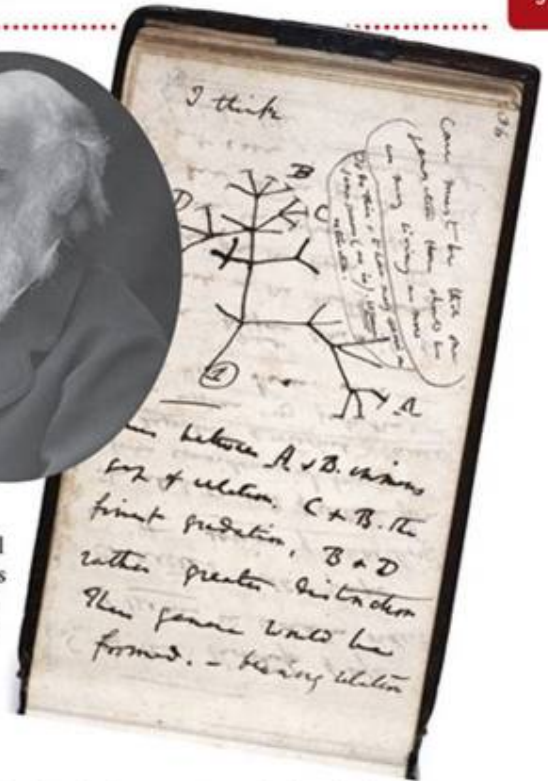 36
I think
B
D
C
A
1
case must be that one
generation then should be
as many living as now
To do this & to have many species in
same genus (as is). requires
extinction.
between A & B. immens
gap of relation. C & B. the
finest gradation, B & D
rather greater distinction
Thus genera would be
formed. — bearing relation